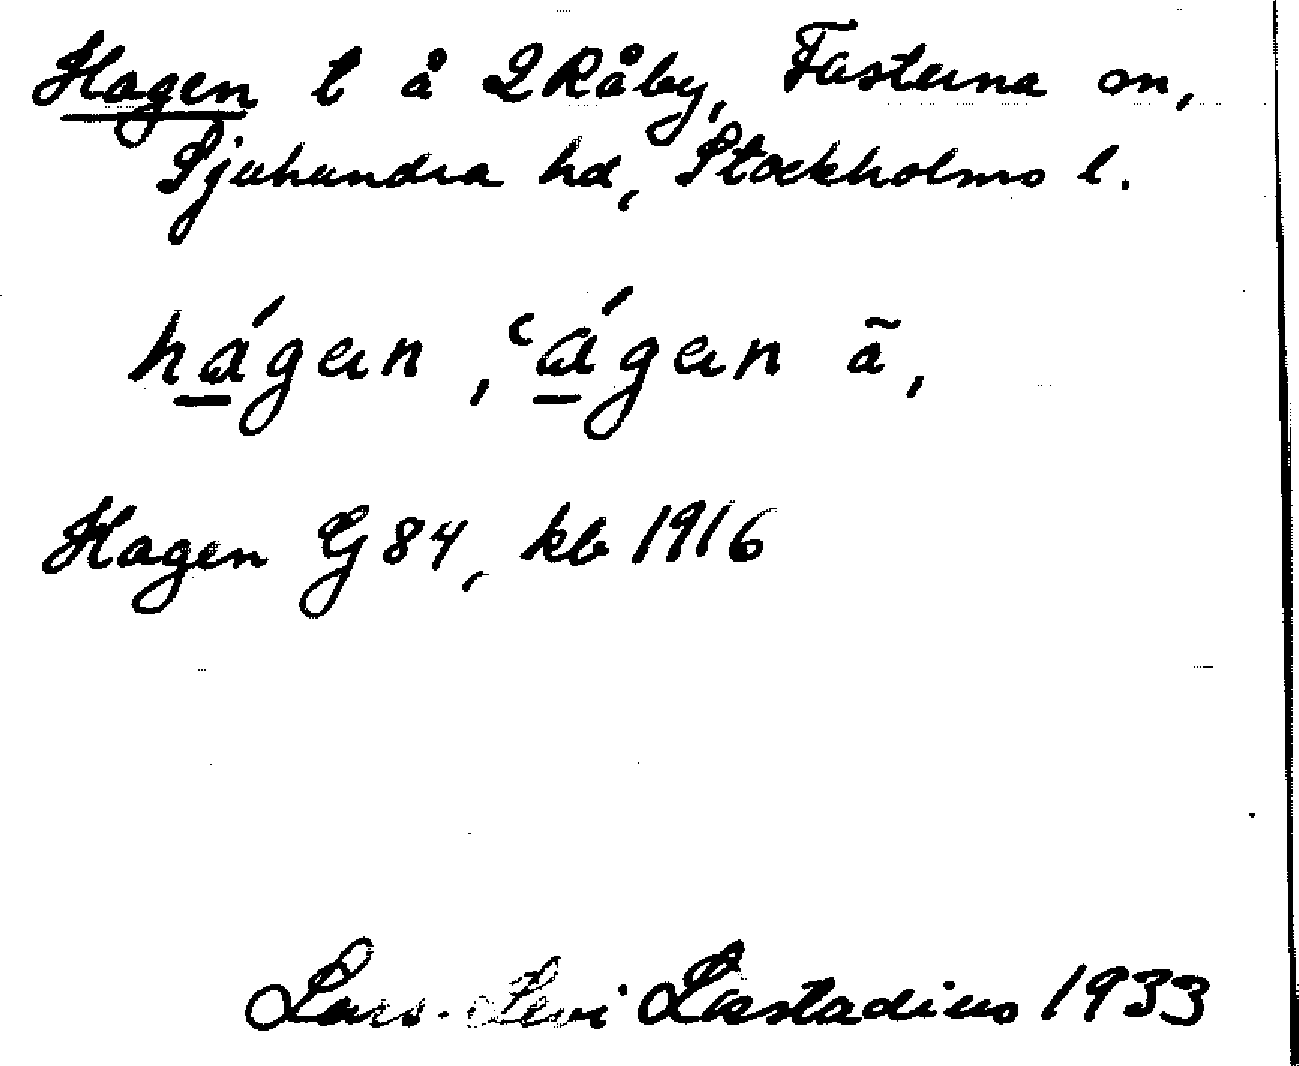 Hagen t å 2 Råby, Fasterna sn,
Sjuhundra hd, Stockholms l.
hágan, ʿágan ã,
Hagen G 84, kb 1916
Lars-Levi Læstadius 1933